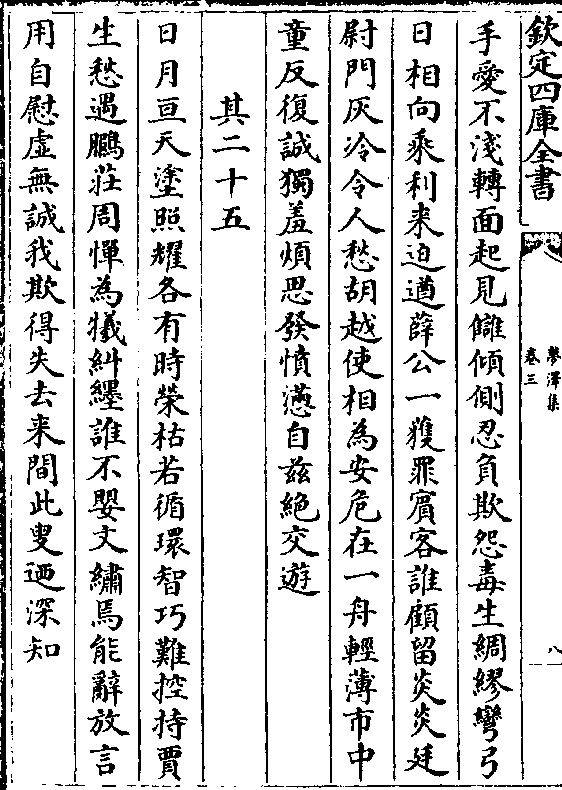 欽定四庫全書
夢澤集
卷三
八
手愛不淺轉面起見讎傾側忍負欺怨毒生綢繆彎弓
日相向乘利来迫遒薛公一獲罪賓客誰顧留炎炎廷
尉門灰冷令人愁胡越使相為安危在一舟輕薄市中
童反復誠獨羞煩思發憤懣自兹絶交遊
其二十五
日月亘天塗照耀各有時榮枯若循環智巧難控持賈
生愁遇鵩莊周憚為犧糾纆誰不嬰文繡焉能辭放言
用自慰虛無誠我欺得失去来間此叟迺深知